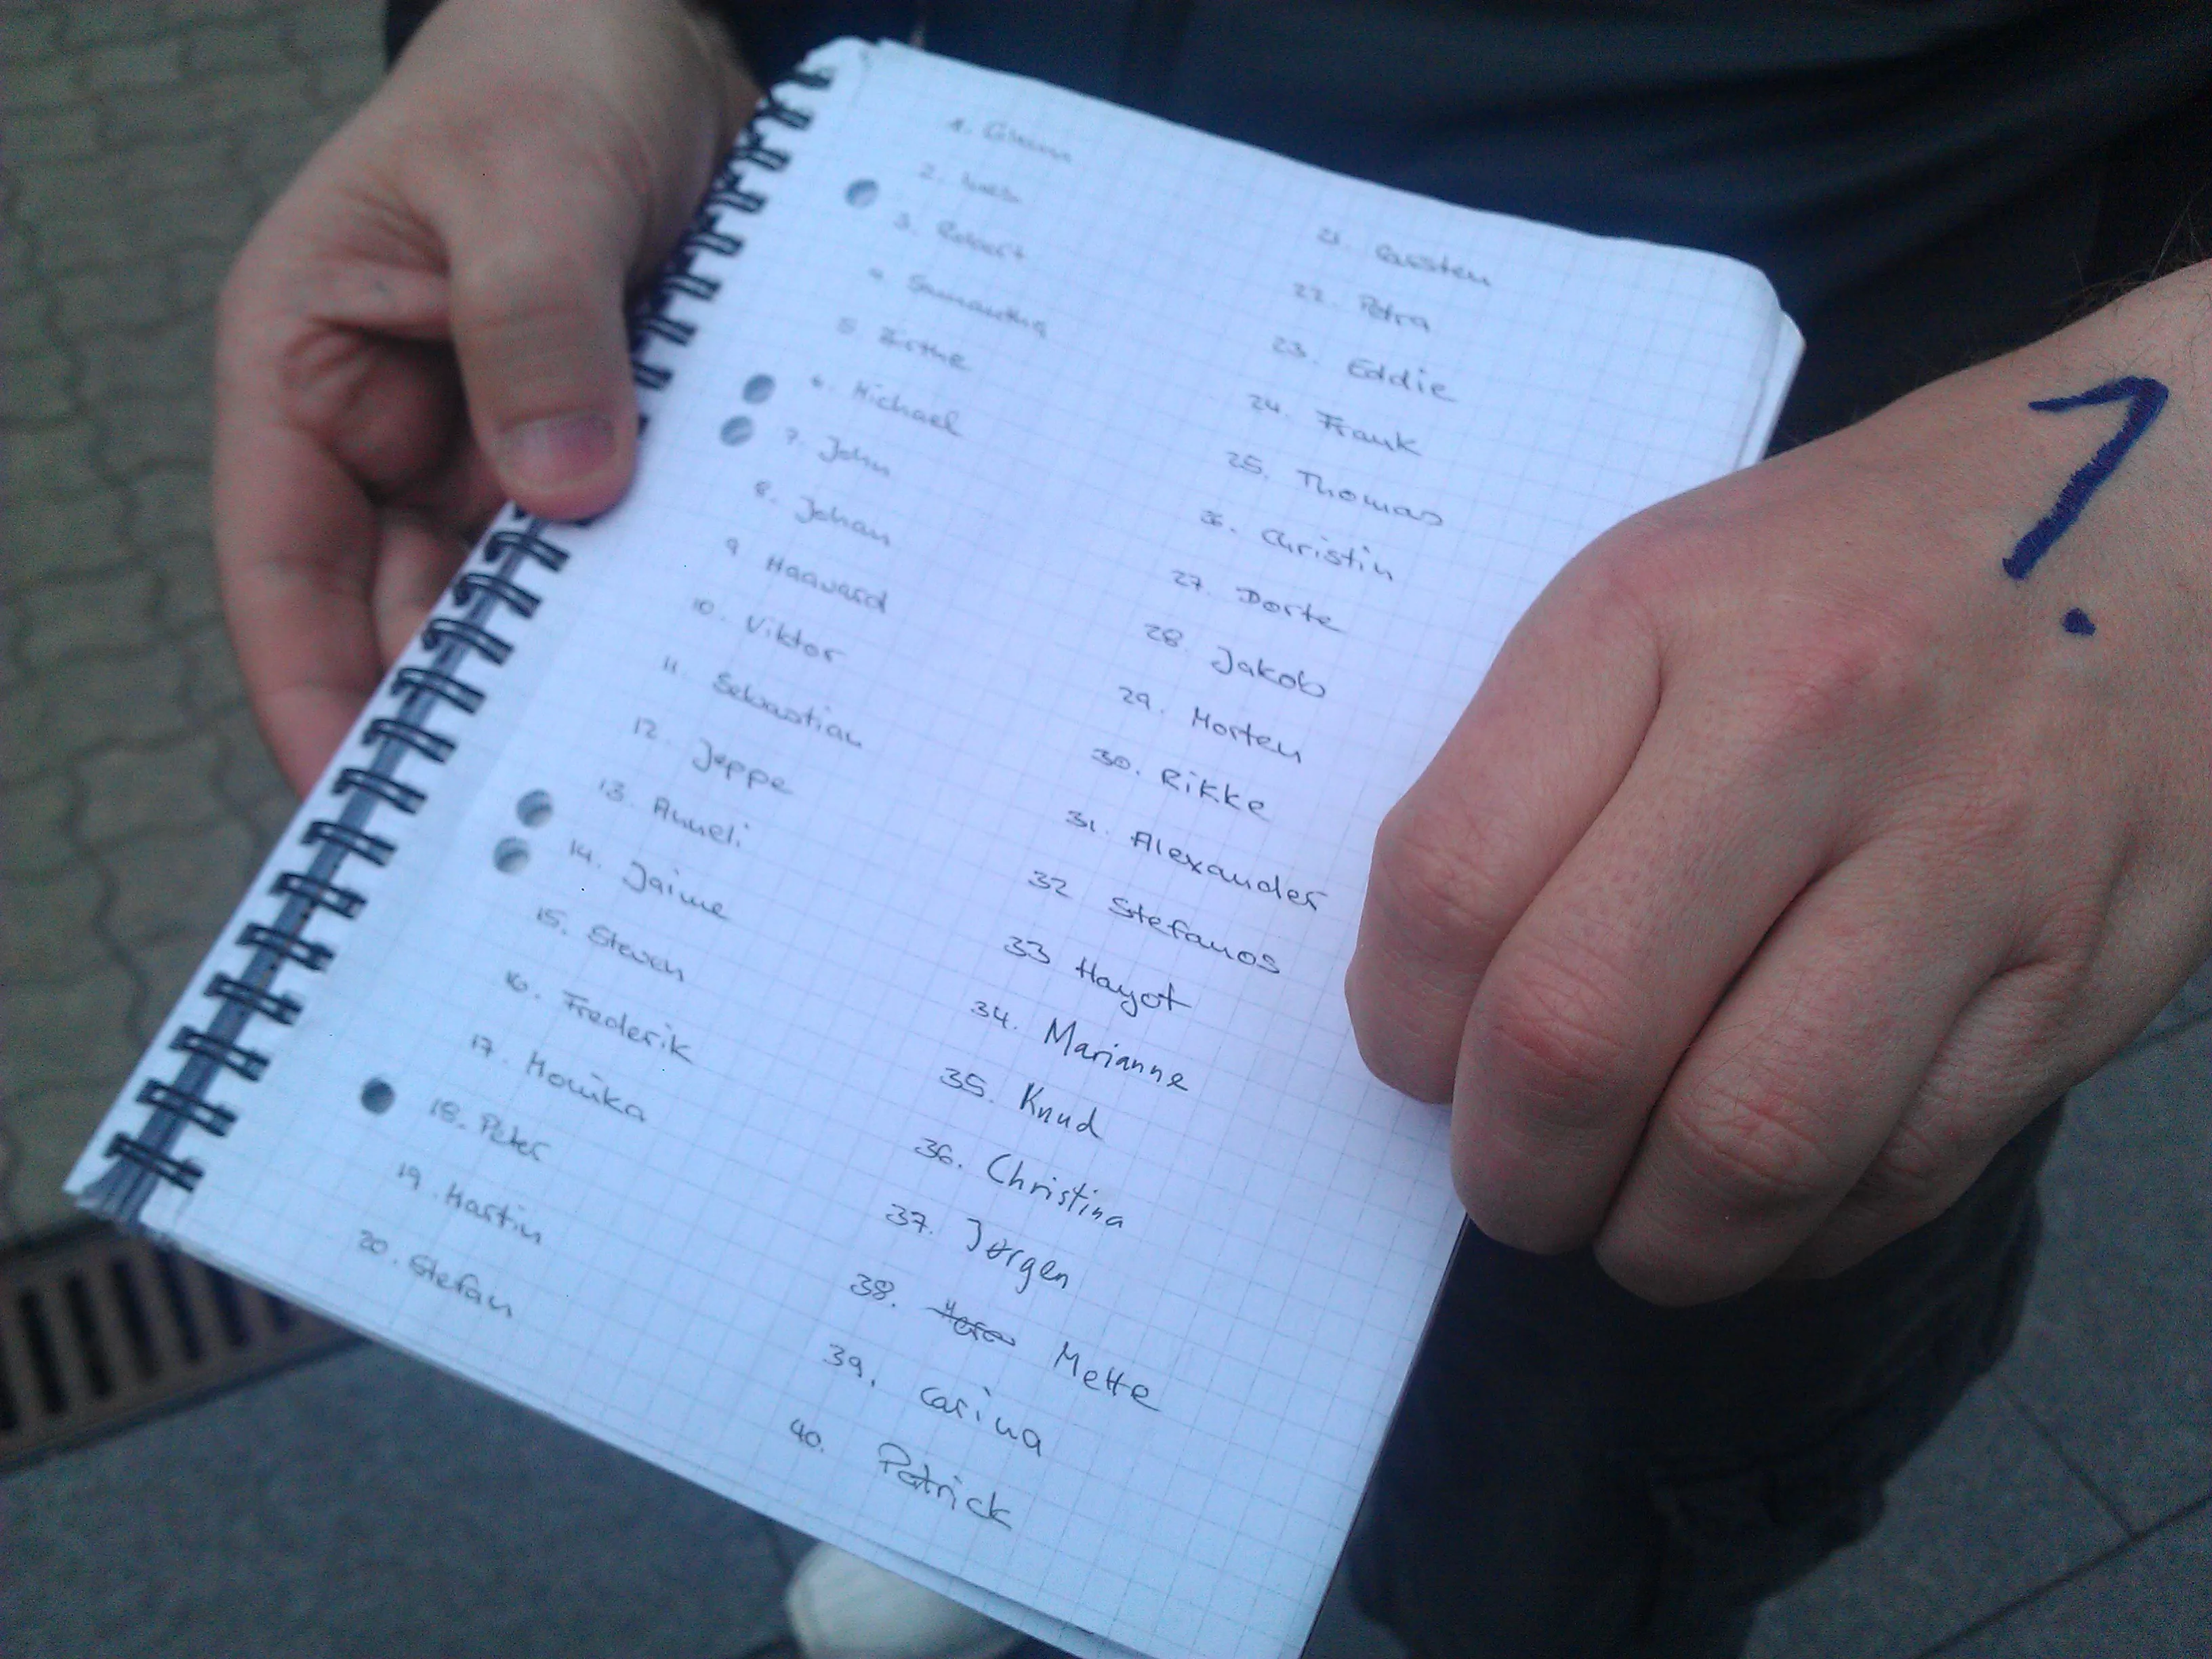 1.
2.
3. Robert
4. Samantha
5. Birthe
6. Michael
7. John
8. Johan
9. Haavard
10. Viktor
11. Sebastian
12. Jeppe
13. Anneli
14. Jaime
15. Steven
16. Frederik
17. Monika
18. Peter
19. Martin
20. Stefan
21. Carsten
22. Petra
23. Eddie
24. Frank
25. Thomas
26. Christin
27. Dorte
28. Jakob
29. Morten
30. Rikke
31. Alexander
32 Stefanos
33 Hayot
34. Marianne
35. Knud
36. Christina
37. Jørgen
38. Mette
39. Carina
40. Patrick
1.